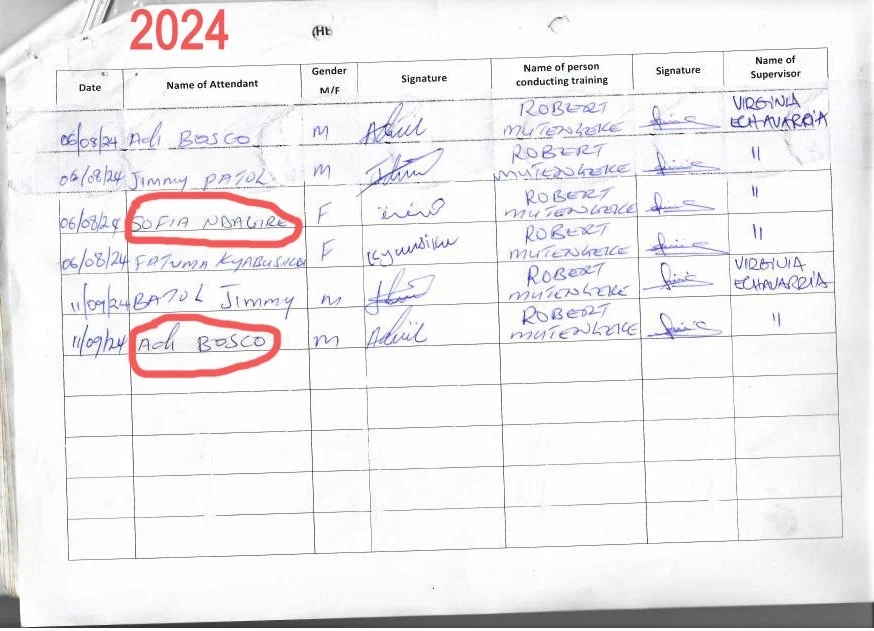 2024
(HL
Date Name of Attendant Gender M/F Signature Name of person conducting training Signature Name of Supervisor
06/08/24 Adi BOSCO M ROBERT MUTENGEKE VIRGINIA ECHAVARRIA
06/08/24 Jimmy PATOL M ROBERT MUTENGEKE "
06/08/24 SOFIA NBAGIRE F ROBERT MUTENGEKE "
06/08/24 FATUMA KYABUSIKU F Kyabusiku ROBERT MUTENGEKE "
11/09/24 BATOL Jimmy M ROBERT MUTENGEKE VIRGINIA ECHAVARRIA
11/09/24 Adi BOSCO M ROBERT MUTENGEKE "